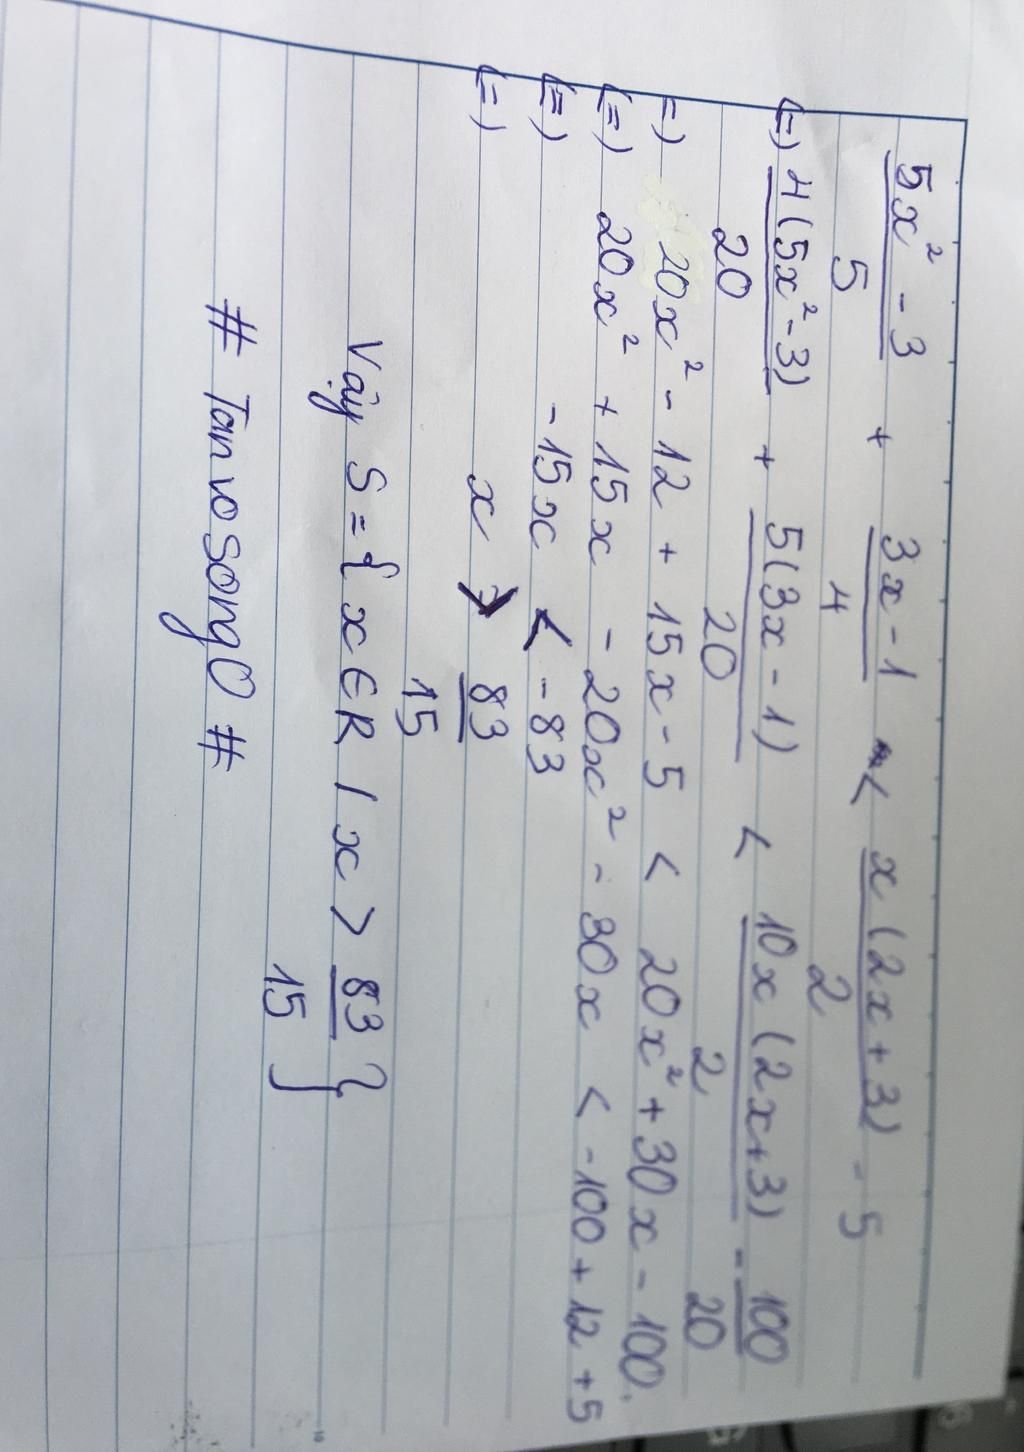 5x² - 3 + 3x - 1 < x(2x+3) - 5
5 4 2
(=) 4(5x²-3) + 5(3x-1) < 10x(2x+3) - 100
20 20 2 20
=) 20x² - 12 + 15x - 5 < 20x² + 30x - 100.
(=) 20x² + 15x - 20x² - 30x < -100 + 12 + 5
(=) -15x < -83
(=) x > 83
15
Vậy S = { x ∈ R / x > 83 }
15
# Tanvosong0 #